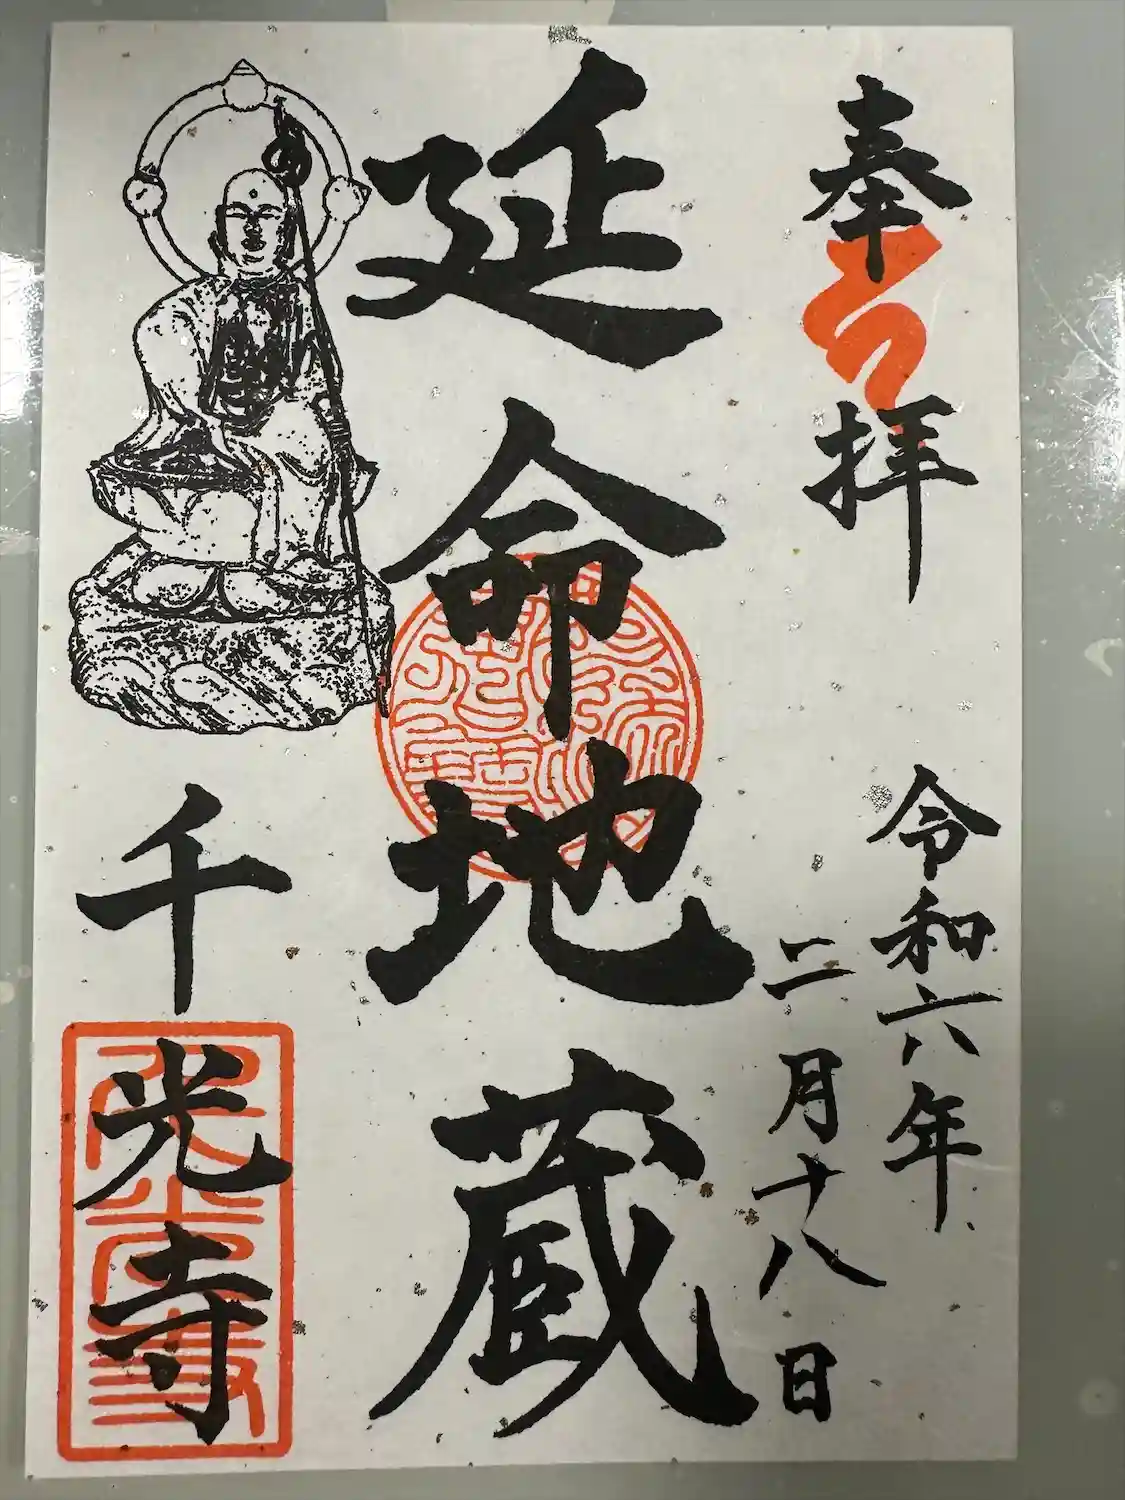 奉拝
令和六年
二月十八日
延命地蔵
千光寺